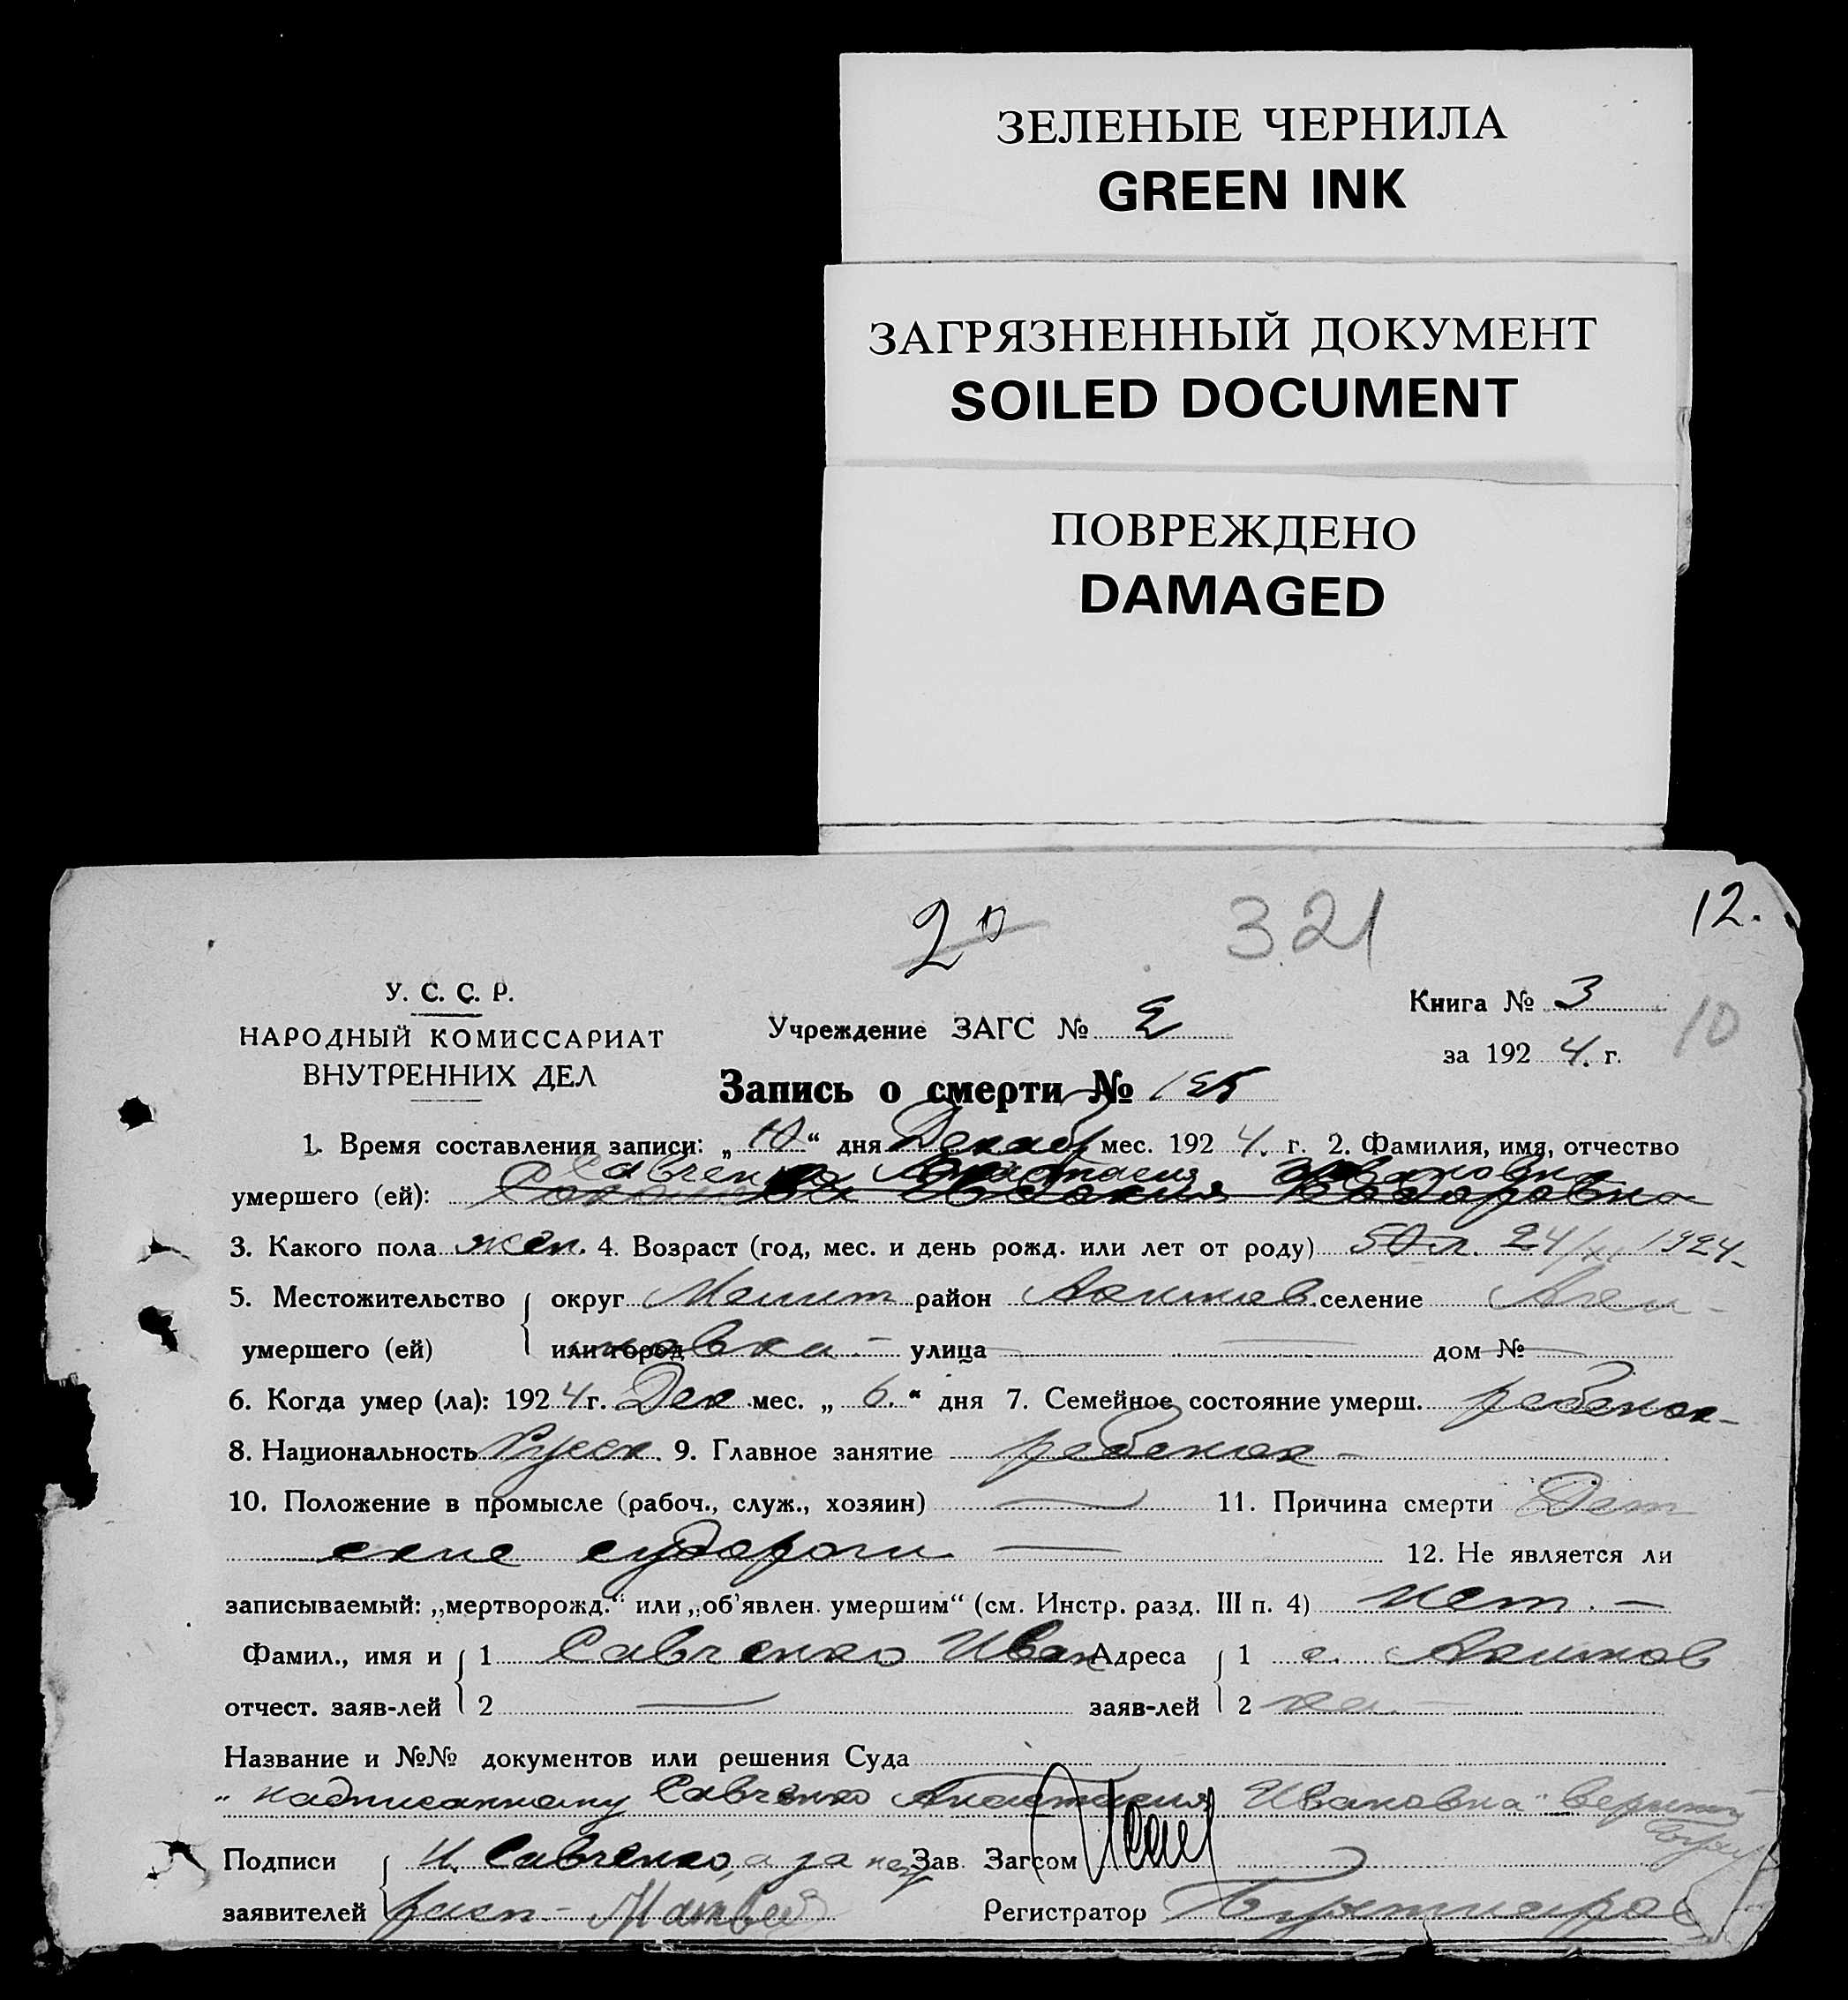 ЗЕЛЕНЫЕ ЧЕРНИЛА
GREEN INK
ЗАГРЯЗНЕННЫЙ ДОКУМЕНТ
SOILED DOCUMENT
ПОВРЕЖДЕНО
DAMAGED
321
12.
У. С. С. Р.
НАРОДНЫЙ КОМИССАРИАТ
ВНУТРЕННИХ ДЕЛ
Учреждение ЗАГС №
Книга № 3
за 1924. г.
10
Запись о смерти №
1. Время составления записи: „10“ дня Декабр мес. 1924. г. 2. Фамилия, имя, отчество
Савченко Анастасия Ивановна
умершего (ей): Евдокия Федоровна
3. Какого пола жен. 4. Возраст (год, мес. и день рожд. или лет от роду) 50 л. 24/XI 1924-
5. Местожительство округ Мелит район Акимов. селение Аки-
умершего (ей) или город мовка - улица — дом № —
6. Когда умер (ла): 1924 г. Дек мес. „6.“ дня 7. Семейное состояние умерш. ребенок-
8. Национальность Русск. 9. Главное занятие ребенок -
10. Положение в промысле (рабоч., служ., хозяин) — 11. Причина смерти Дет
ские судороги — 12. Не является ли
записываемый: „мертворожд.“ или „об'явлен. умершим“ (см. Инстр. разд. III п. 4) нет. —
Фамил., имя и 1 Савченко Иван Адреса 1 с. Акимов
отчест. заяв-лей 2 — заяв-лей 2 ка. —
Название и №№ документов или решения Суда
„надписанному Савченко Анастасия Ивановна“ верить
Подписи И. Савченко, а за нег Зав. Загсом
заявителей расп.- Регистратор